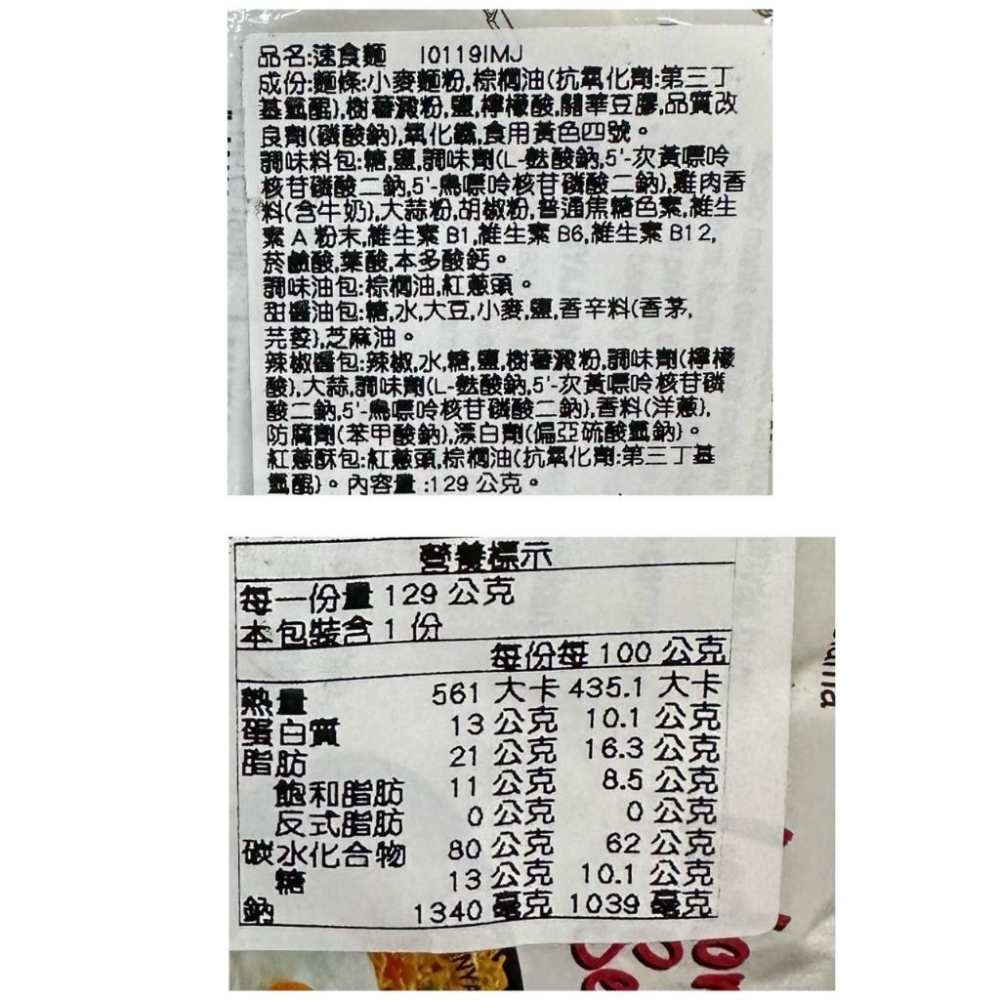 品名:速食麵 I0119IMJ
成份:麵條:小麥麵粉,棕櫚油(抗氧化劑:第三丁
基氫醌),樹薯澱粉,鹽,檸檬酸,關華豆膠,品質改
良劑(磷酸鈉),氧化鐵,食用黃色四號。
調味料包:糖,鹽,調味劑(L-麩酸鈉,5'-次黃嘌呤
核苷磷酸二鈉,5'-鳥嘌呤核苷磷酸二鈉),雞肉香
料(含牛奶),大蒜粉,胡椒粉,普通焦糖色素,維生
素 A 粉末,維生素 B1,維生素 B6,維生素 B12,
菸鹼酸,葉酸,本多酸鈣。
調味油包:棕櫚油,紅蔥頭。
甜醬油包:糖,水,大豆,小麥,鹽,香辛料(香茅,
芫荽),芝麻油。
辣椒醬包:辣椒,水,糖,鹽,樹薯澱粉,調味劑(檸檬
酸),大蒜,調味劑(L-麩酸鈉,5'-次黃嘌呤核苷磷
酸二鈉,5'-鳥嘌呤核苷磷酸二鈉),香料(洋蔥),
防腐劑(苯甲酸鈉),漂白劑(偏亞硫酸氫鈉)。
紅蔥酥包:紅蔥頭,棕櫚油(抗氧化劑:第三丁基
氫醌)。內容量:129 公克。
營養標示
每一份量 129 公克
本包裝含 1 份
每份每 100 公克
熱量 561 大卡 435.1 大卡
蛋白質 13 公克 10.1 公克
脂肪 21 公克 16.3 公克
飽和脂肪 11 公克 8.5 公克
反式脂肪 0 公克 0 公克
碳水化合物 80 公克 62 公克
糖 13 公克 10.1 公克
鈉 1340 毫克 1039 毫克